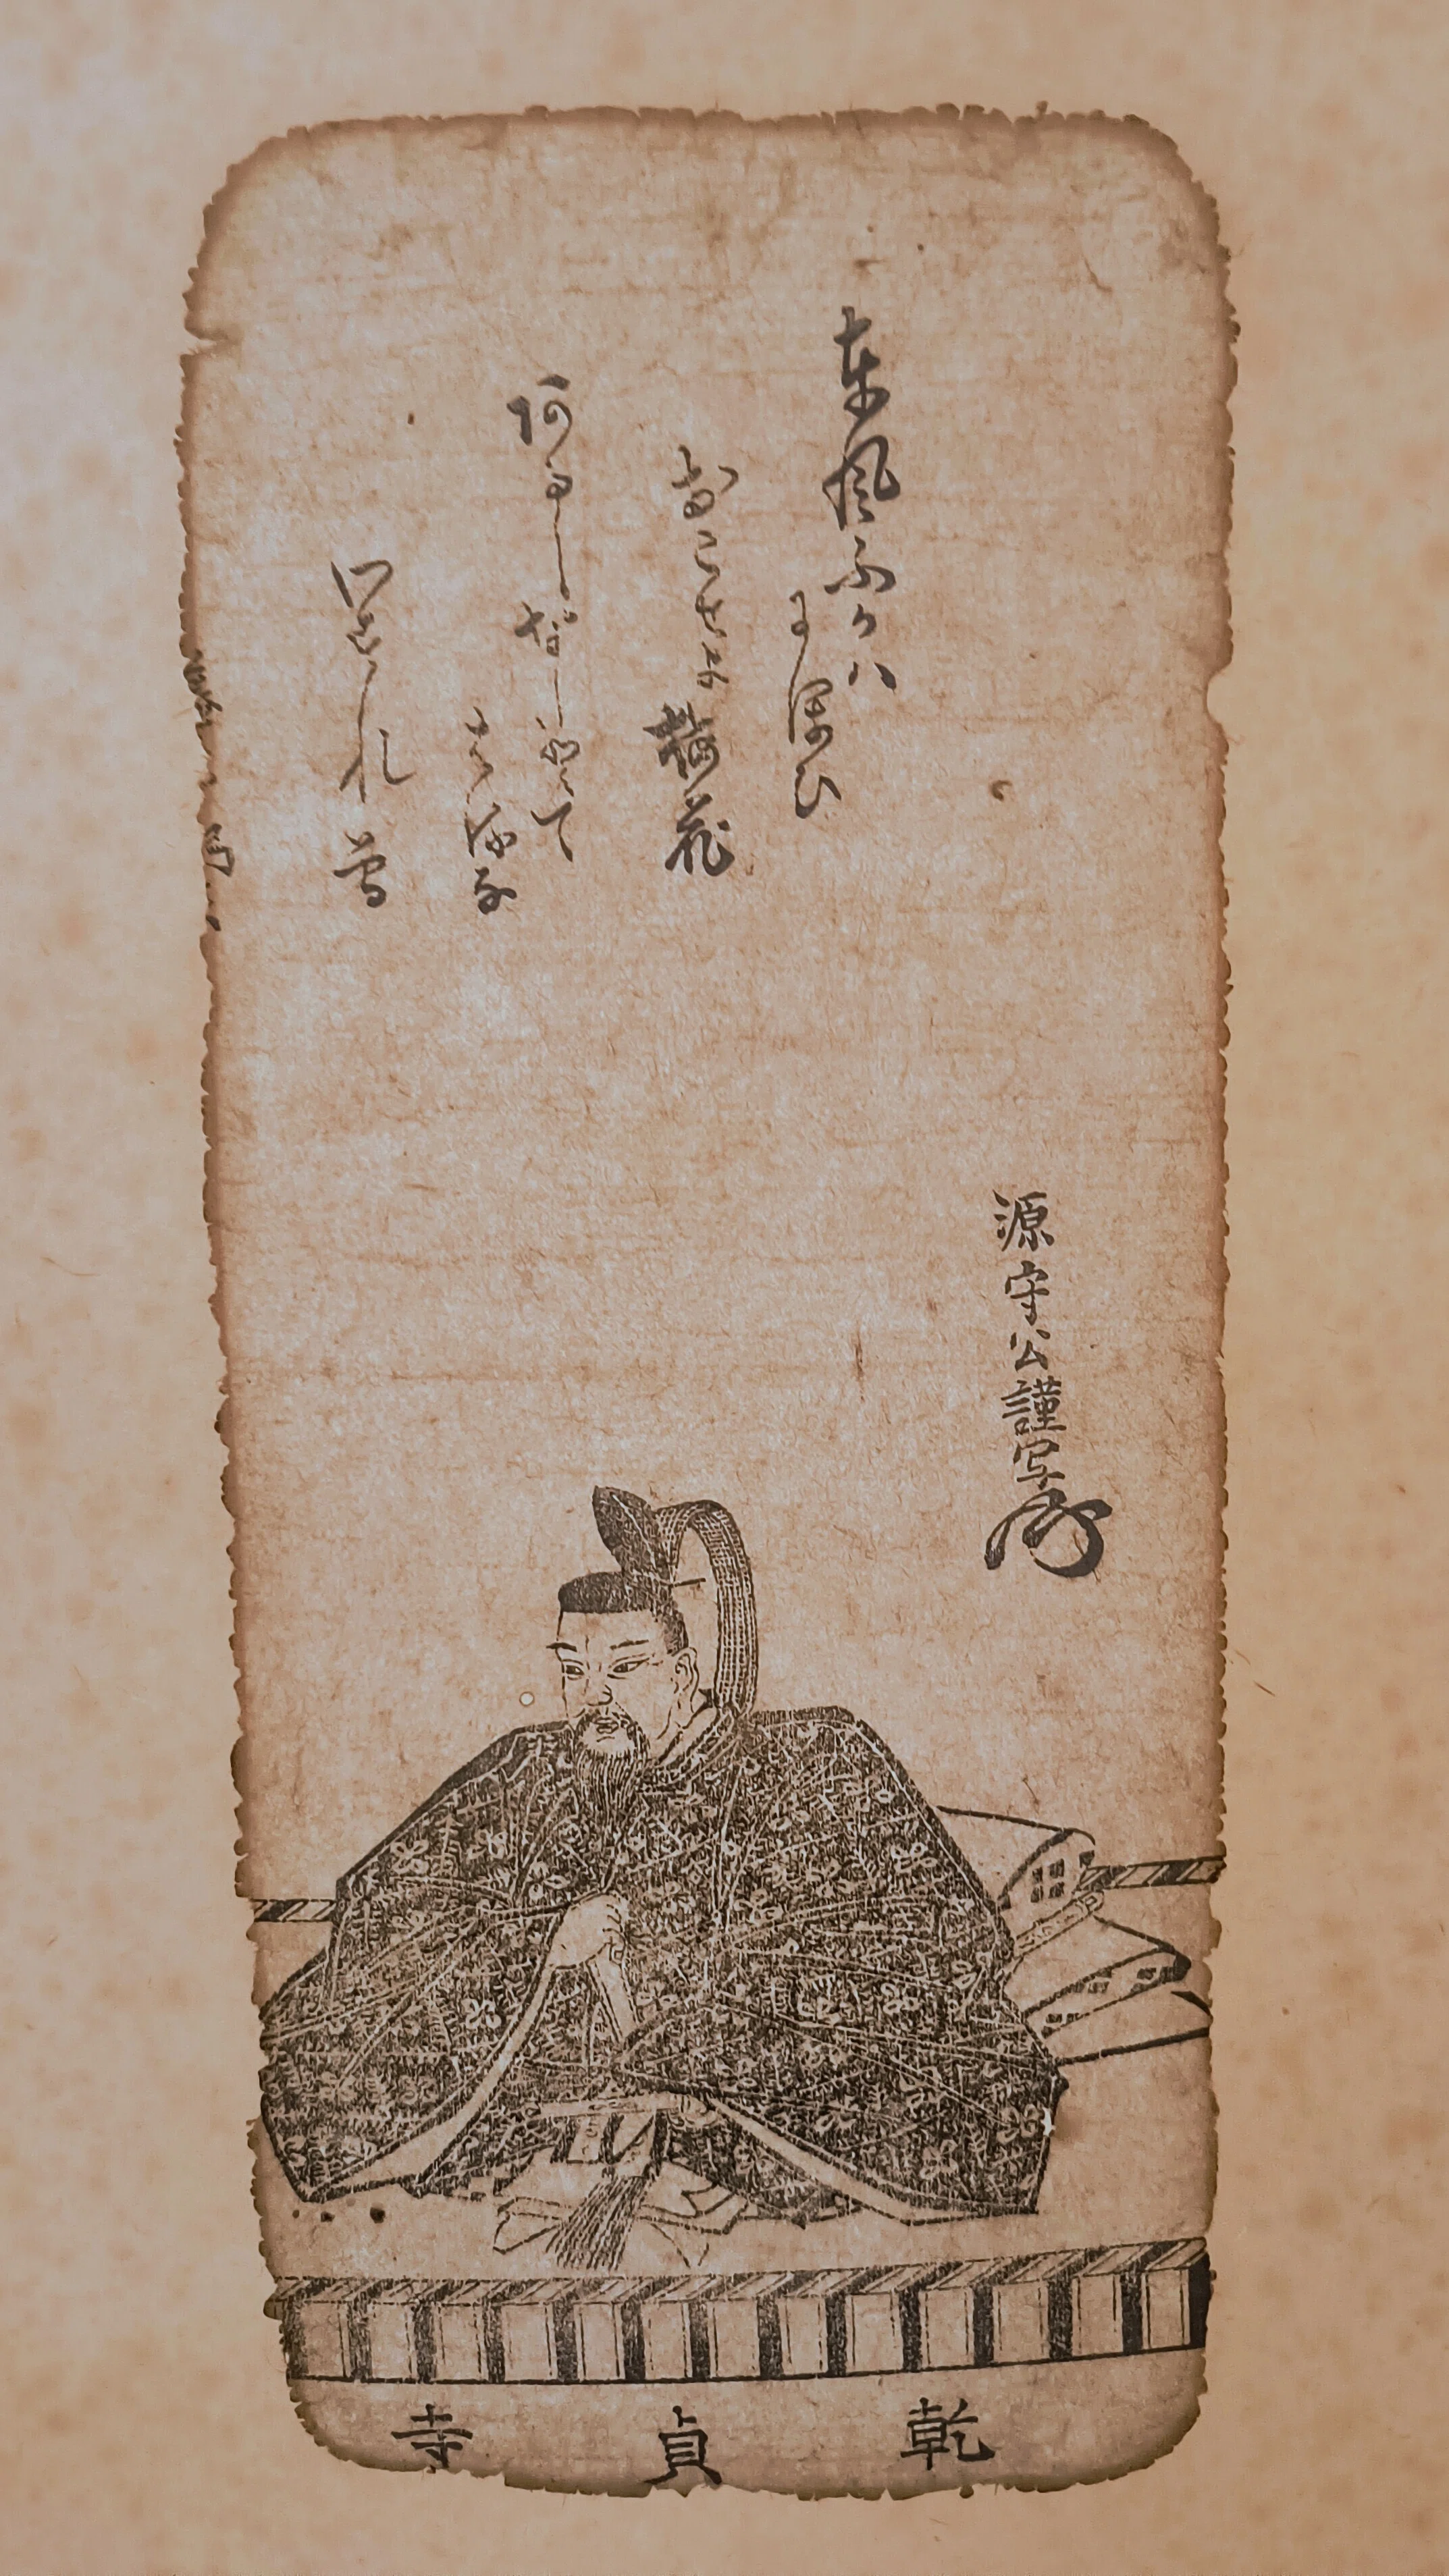 東風ふかハ
にほひ
おこせよ梅花
阿るしなしとて
はるな
わすれ曽
源守公謹写
乾貞寺